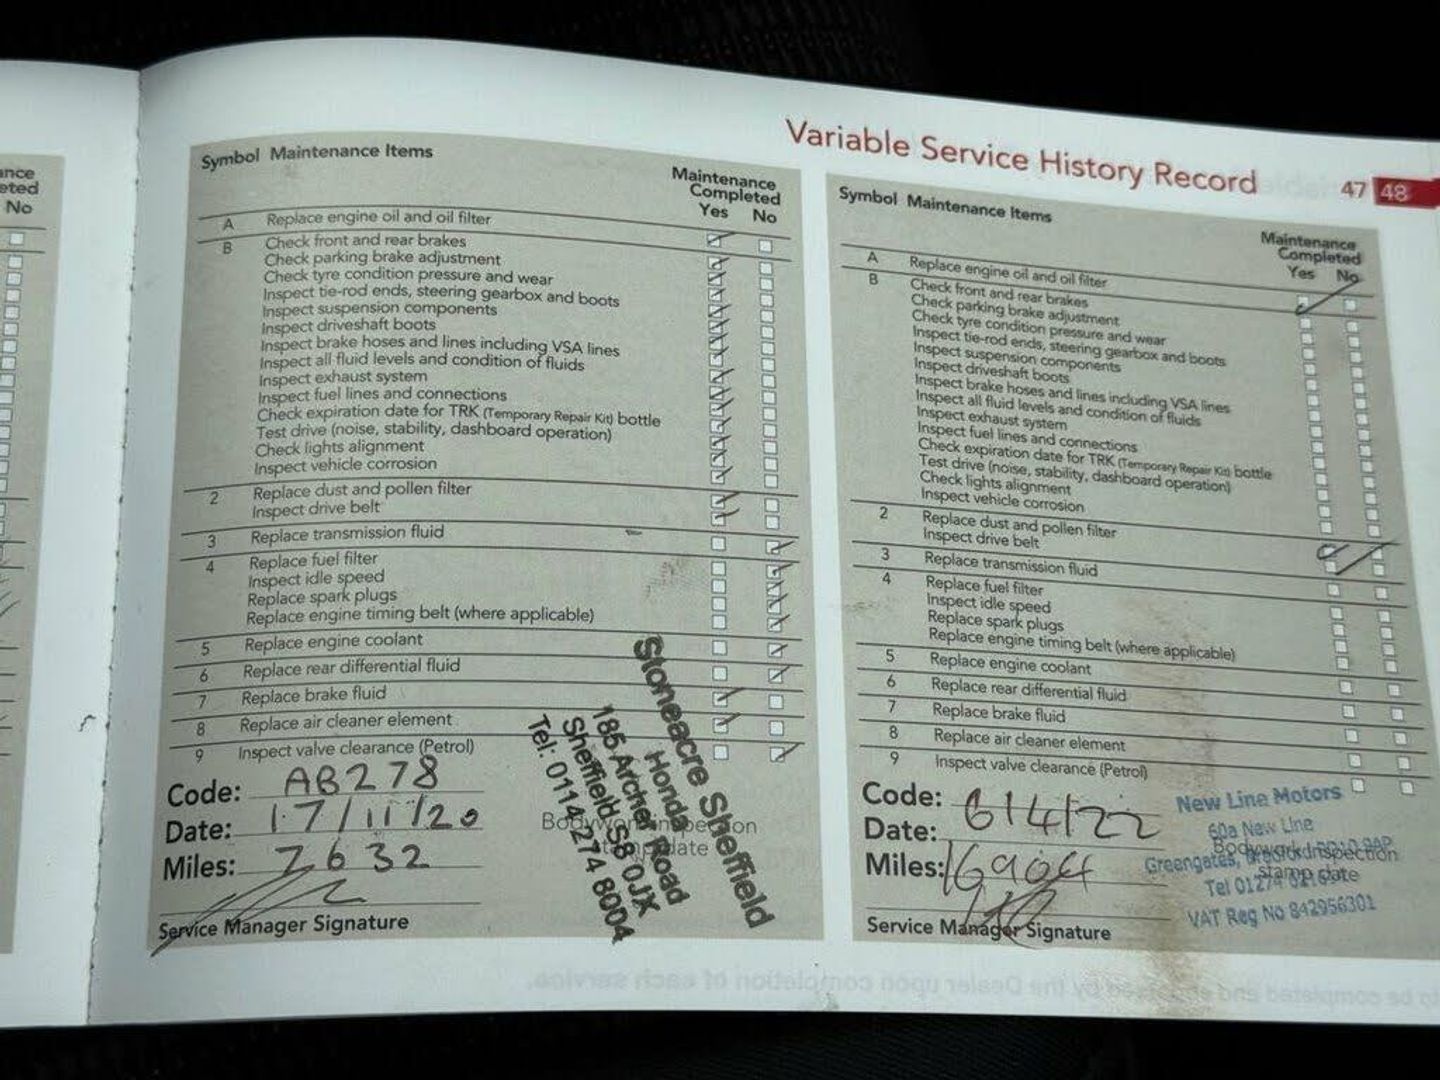 Variable Service History Record
47 48
ance
eted
No
Symbol Maintenance Items
Maintenance
Completed
Yes No
A Replace engine oil and oil filter
B Check front and rear brakes
Check parking brake adjustment
Check tyre condition pressure and wear
Inspect tie-rod ends, steering gearbox and boots
Inspect suspension components
Inspect driveshaft boots
Inspect brake hoses and lines including VSA lines
Inspect all fluid levels and condition of fluids
Inspect exhaust system
Inspect fuel lines and connections
Check expiration date for TRK (Temporary Repair Kit) bottle
Test drive (noise, stability, dashboard operation)
Check lights alignment
Inspect vehicle corrosion
2 Replace dust and pollen filter
Inspect drive belt
3 Replace transmission fluid
4 Replace fuel filter
Inspect idle speed
Replace spark plugs
Replace engine timing belt (where applicable)
5 Replace engine coolant
6 Replace rear differential fluid
7 Replace brake fluid
8 Replace air cleaner element
9 Inspect valve clearance (Petrol)
Code: AB278
Date: 17/11/20
Miles: 7632
Service Manager Signature
Stoneacre Sheffield
Honda
185 Archer Road
Sheffield S8 0JX
Tel: 0114 274 8004
Symbol Maintenance Items
Maintenance
Completed
Yes No
A Replace engine oil and oil filter
B Check front and rear brakes
Check parking brake adjustment
Check tyre condition pressure and wear
Inspect tie-rod ends, steering gearbox and boots
Inspect suspension components
Inspect driveshaft boots
Inspect brake hoses and lines including VSA lines
Inspect all fluid levels and condition of fluids
Inspect exhaust system
Inspect fuel lines and connections
Check expiration date for TRK (Temporary Repair Kit) bottle
Test drive (noise, stability, dashboard operation)
Check lights alignment
Inspect vehicle corrosion
2 Replace dust and pollen filter
Inspect drive belt
3 Replace transmission fluid
4 Replace fuel filter
Inspect idle speed
Replace spark plugs
Replace engine timing belt (where applicable)
5 Replace engine coolant
6 Replace rear differential fluid
7 Replace brake fluid
8 Replace air cleaner element
9 Inspect valve clearance (Petrol)
Code:
Date: 6/4/22
Miles: 16904
Service Manager Signature
New Line Motors
60a New Line
Bodywork Inspection
Greengates,
stamp date
Tel
VAT Reg No 842956301